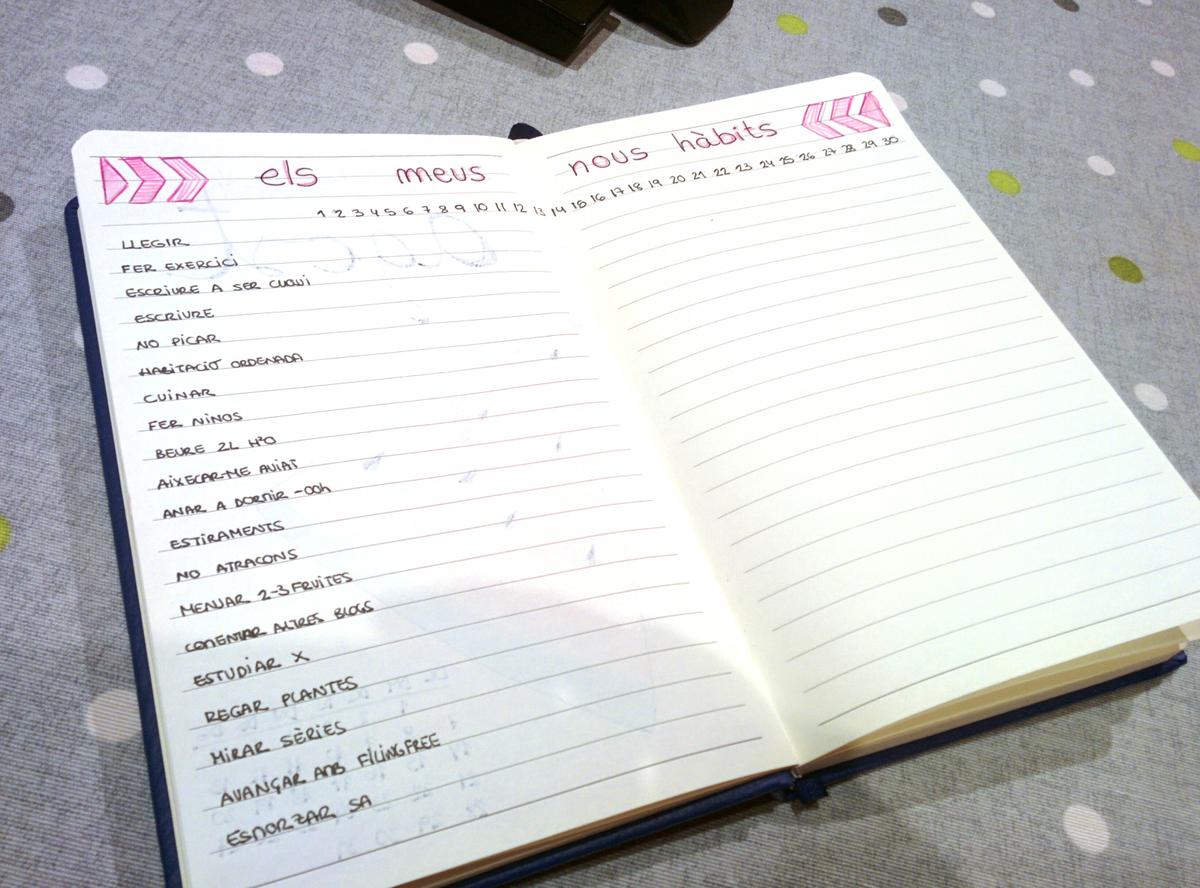 els meus nous hàbits
1 2 3 4 5 6 7 8 9 10 11 12 13 14 15 16 17 18 19 20 21 22 23 24 25 26 27 28 29 30
LLEGIR
FER EXERCICI
ESCRIURE A SER CUQUI
ESCRIURE
NO PICAR
HABITACIÓ ORDENADA
CUINAR
FER NINOS
BEURE 2L H²O
AIXECAR-ME AVIAT
ANAR A DORMIR -00h
ESTIRAMENTS
NO ATRACONS
MENJAR 2-3 FRUITES
COMENTAR ALTRES BLOGS
ESTUDIAR X
REGAR PLANTES
MIRAR SÈRIES
AVANÇAR AMB FILINGFREE
ESMORZAR SA